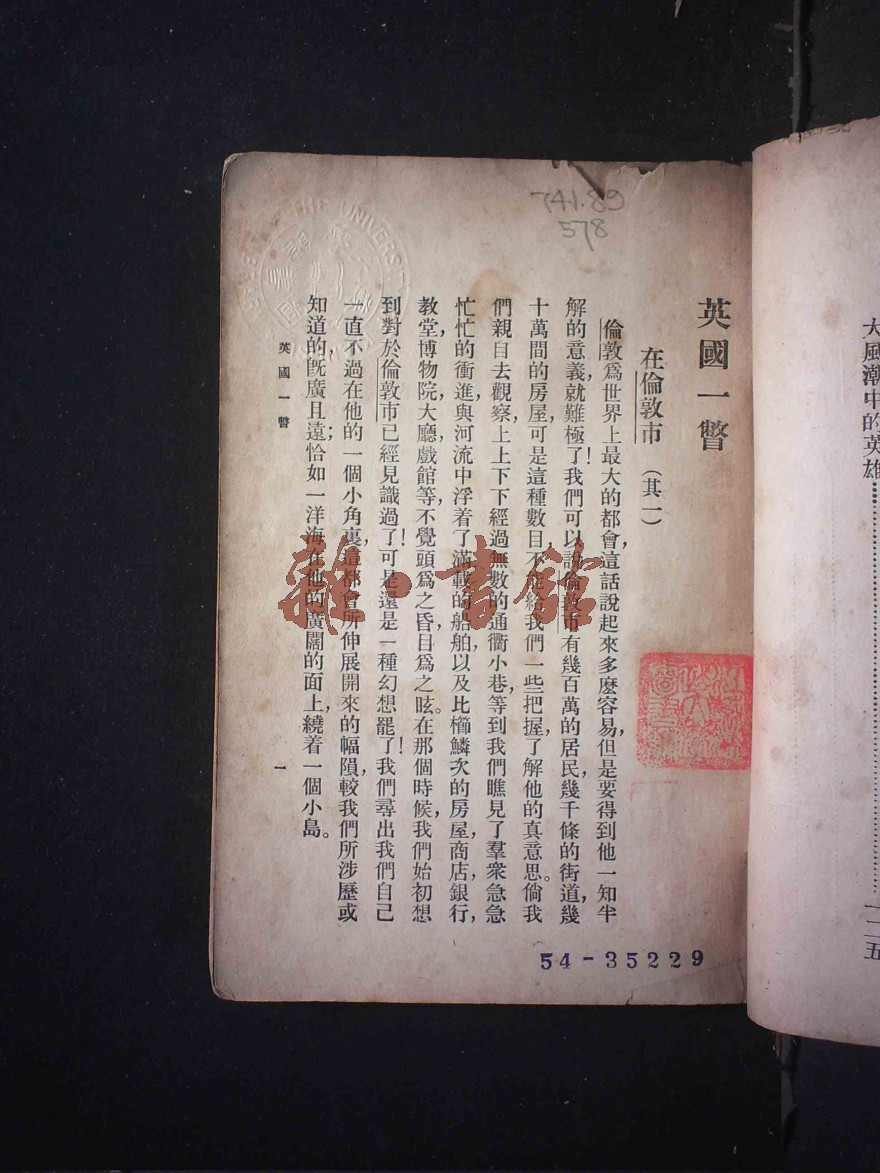 大風潮中的英雄……………………………一一五
741.89
578
英國一瞥
在倫敦市（其一）
倫敦爲世界上最大的都會，這話說起來多麽容易，但是要得到他一知半
解的意義，就難極了！我們可以說倫敦市有幾百萬的居民，幾千條的街道，幾
十萬間的房屋，可是這種數目，不能給我們一些把握，了解他的真意思。倘我
們親自去觀察，上上下下經過無數的通衢小巷，等到我們瞧見了羣衆急急
忙忙的衝進，與河流中浮着了滿載的船舶，以及比櫛鱗次的房屋，商店，銀行，
教堂，博物院，大廳，戲館等，不覺頭爲之昏，目爲之眩。在那個時候，我們始初想
到對於倫敦市已經見識過了！可是還是一種幻想罷了！我們尋出我們自己
一直不過在他的一個小角裏，這都會所伸展開來的幅隕，較我們所涉歷或
知道的，旣廣且遠；恰如一洋海在他的廣闊的面上，繞着一個小島。
英國一瞥
一
54-35229
雜書館